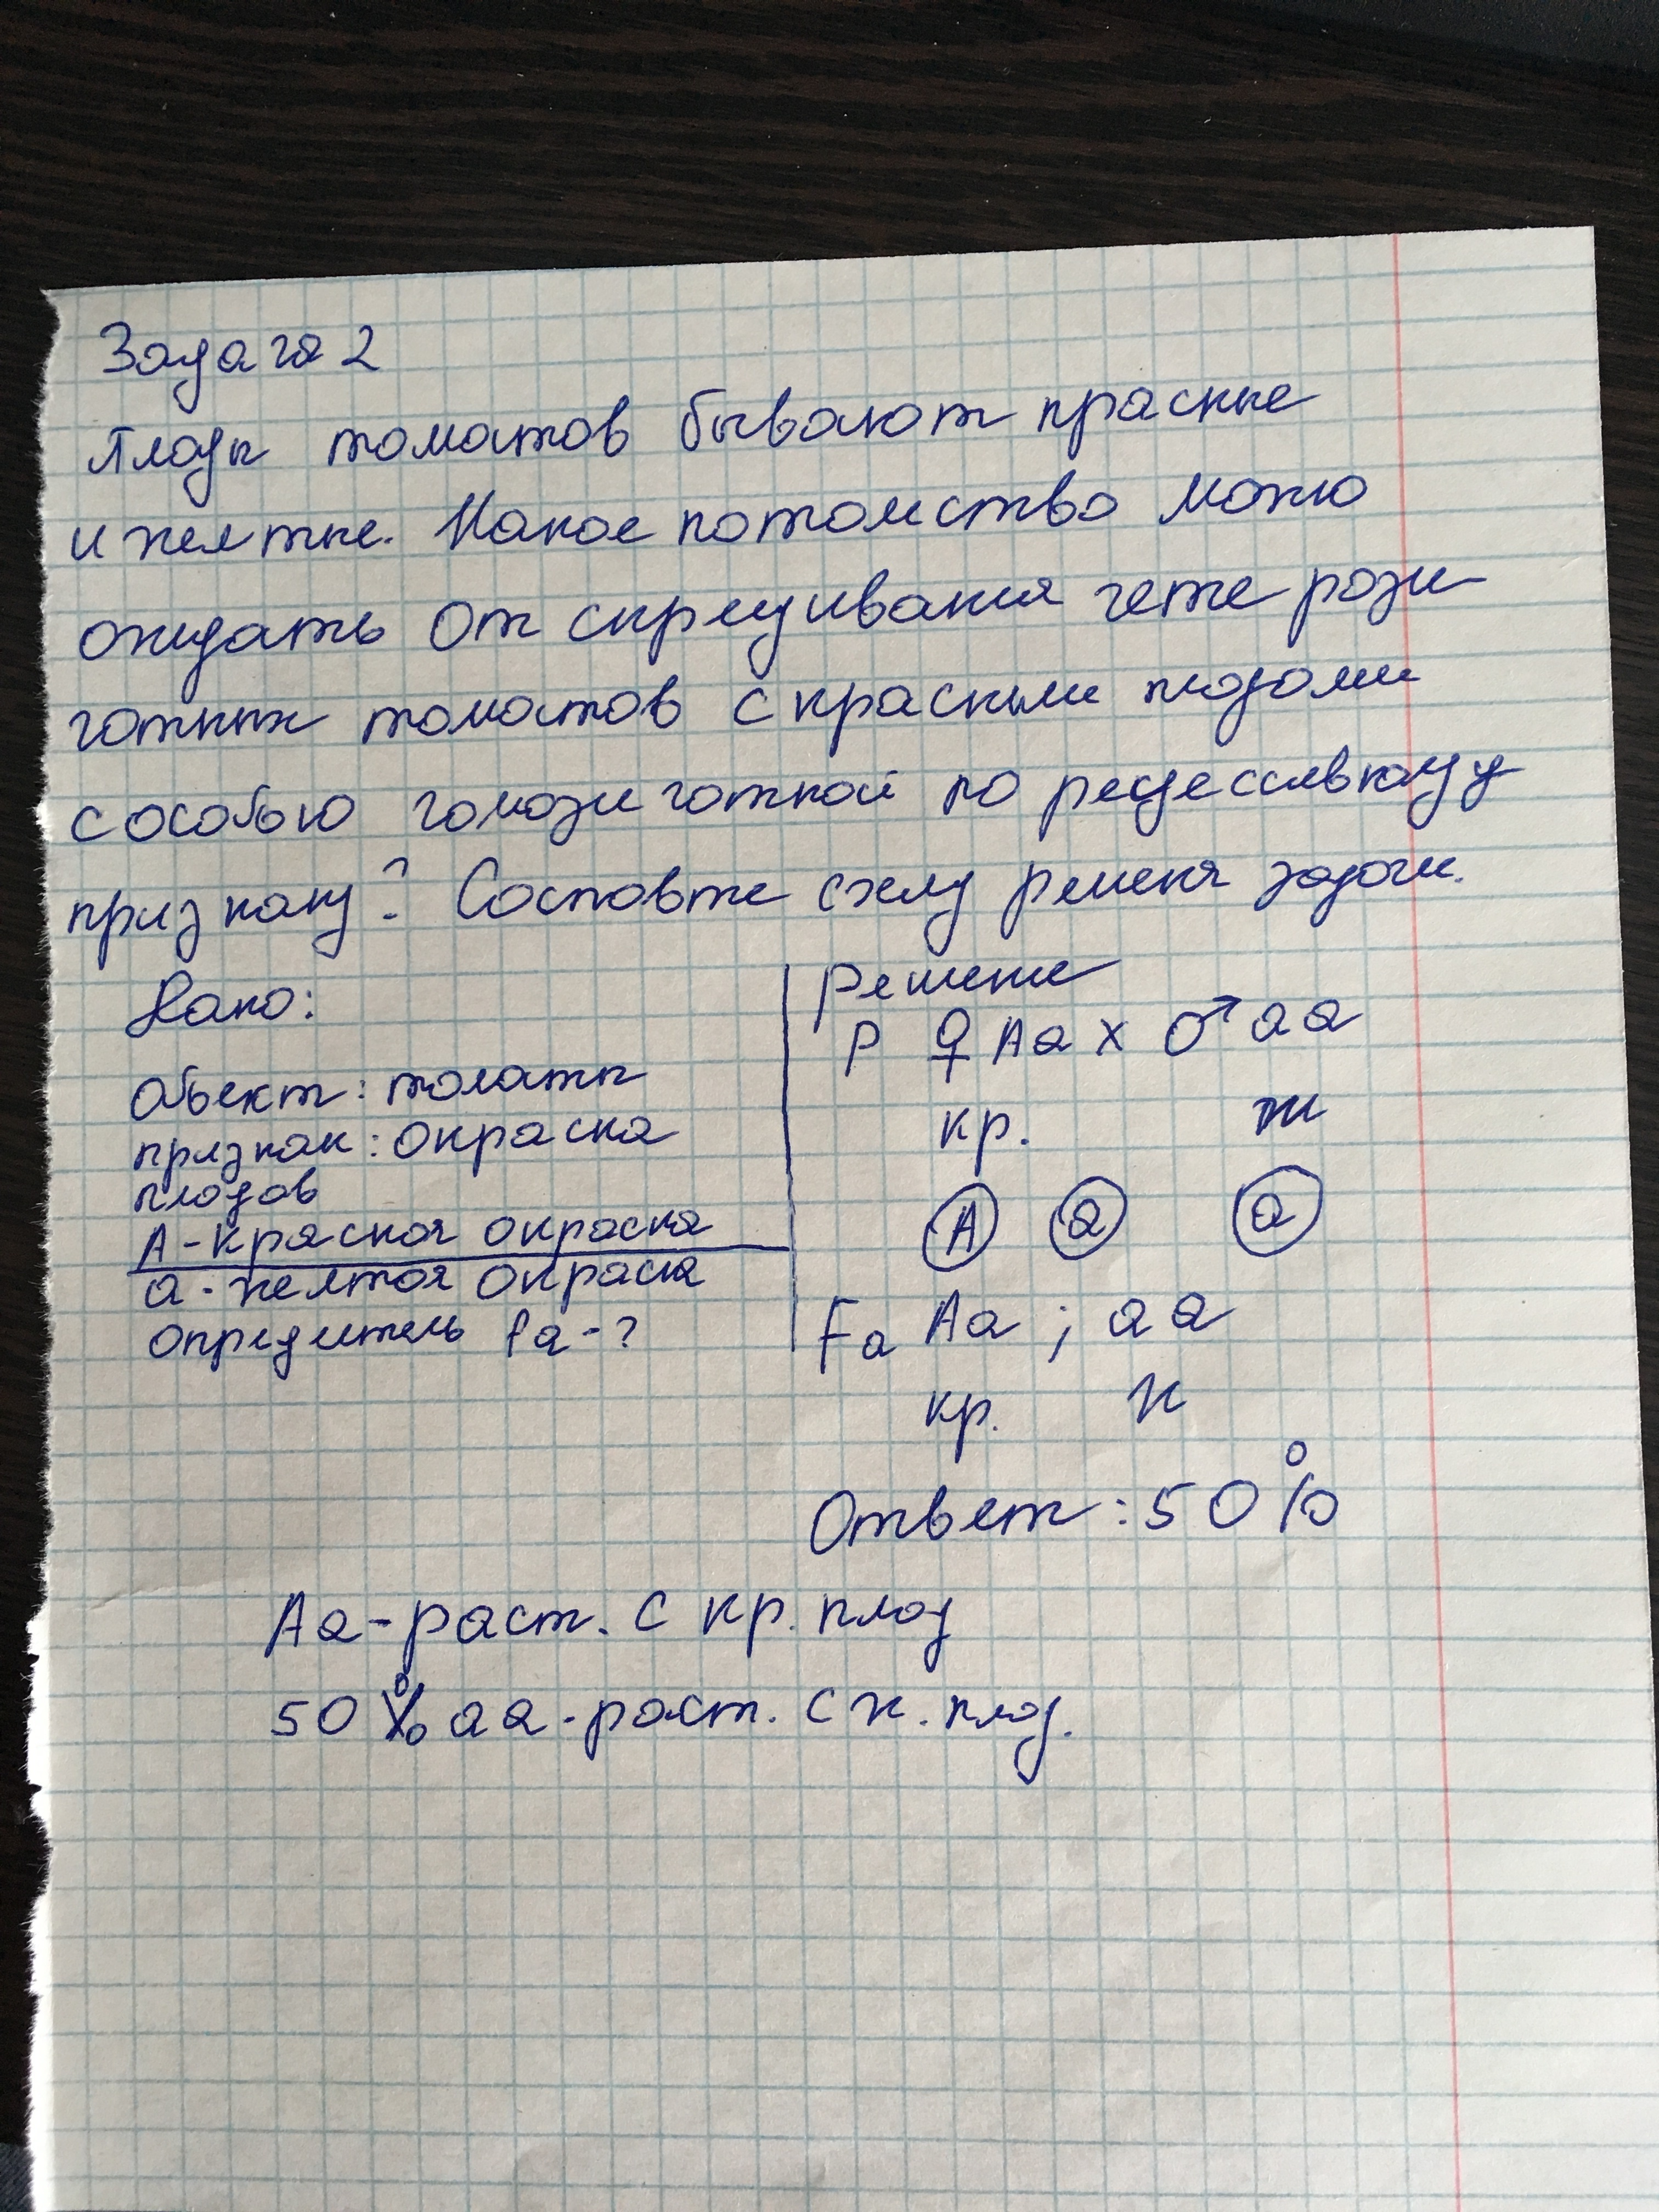 Задача 2
Плоды томатов бывают красные
и желтые. Какое потомство можно
ожидать от скрещивания гетерози-
готных томатов с красными плодами
с особью гомозиготной по рецессивному
признаку? Составте схему решеня задачи.
Дано:
Обьект: томаты
признак: окраска
плодов
А - красная окраска
а - желтая окраска
Определитель Fa - ?
Решение
P ♀ Aa x ♂ aa
кр. ж
A a a
Fa Aa ; aa
кр. ж
Ответ: 50%
Aa - раст. с кр. плод
50% aa - раст. с ж. плод.